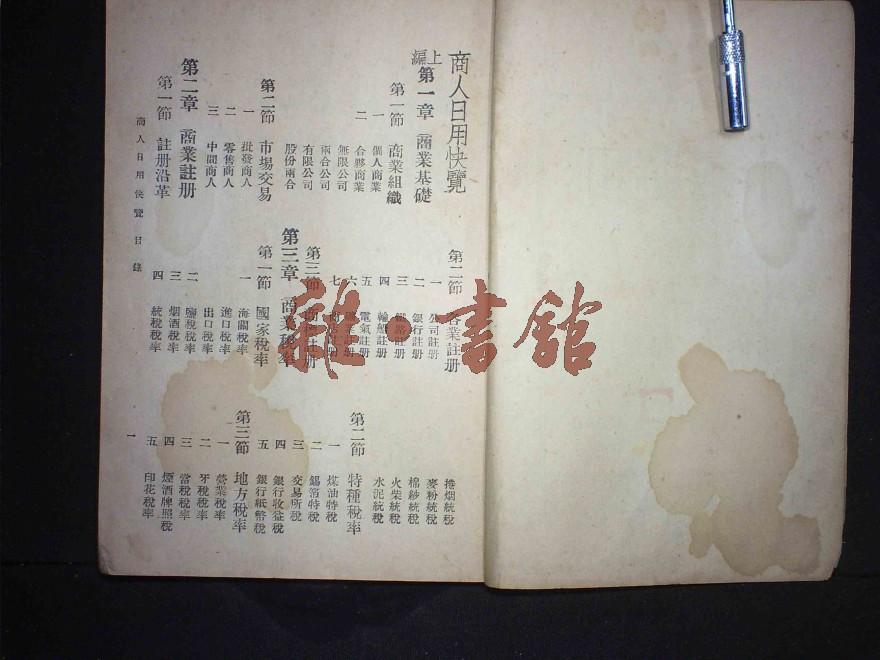 商人日用快覽
上編
第一章 商業基礎
第一節 商業組織
一 個人商業
二 合夥商業
無限公司
兩合公司
有限公司
股份兩合
第二節 市場交易
一 批發商人
二 零售商人
三 中間商人
第二章 商業註册
第一節 註册沿革
第二節 商業註册
一 公司註册
二 銀行註册
三 鐵路註册
四 輪船註册
五 電氣註册
六
七
第三節 商標註册
第三章 商業稅率
第一節 國家稅率
一 海關稅率
進口稅率
出口稅率
二 鹽稅稅率
三 烟酒稅率
四 統稅稅率
捲烟統稅
麥粉統稅
棉紗統稅
火柴統稅
水泥統稅
第二節 特種稅率
一 煤油特稅
二 錫箔特稅
三 交易所稅
四 銀行收益稅
五 銀行紙幣稅
第三節 地方稅率
一 營業稅率
二 牙稅稅率
三 當稅稅率
四 煙酒牌照稅
五 印花稅率
商人日用快覽 目錄
一
雜·書館